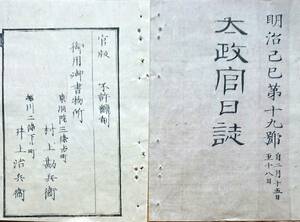 明治己巳第十九號
自二月十五日
至十八日
太政官日誌
官版 不許翻刻
御用御書物所
東洞院三條上町
村上勘兵衛
堀川二條下町
井上治兵衛